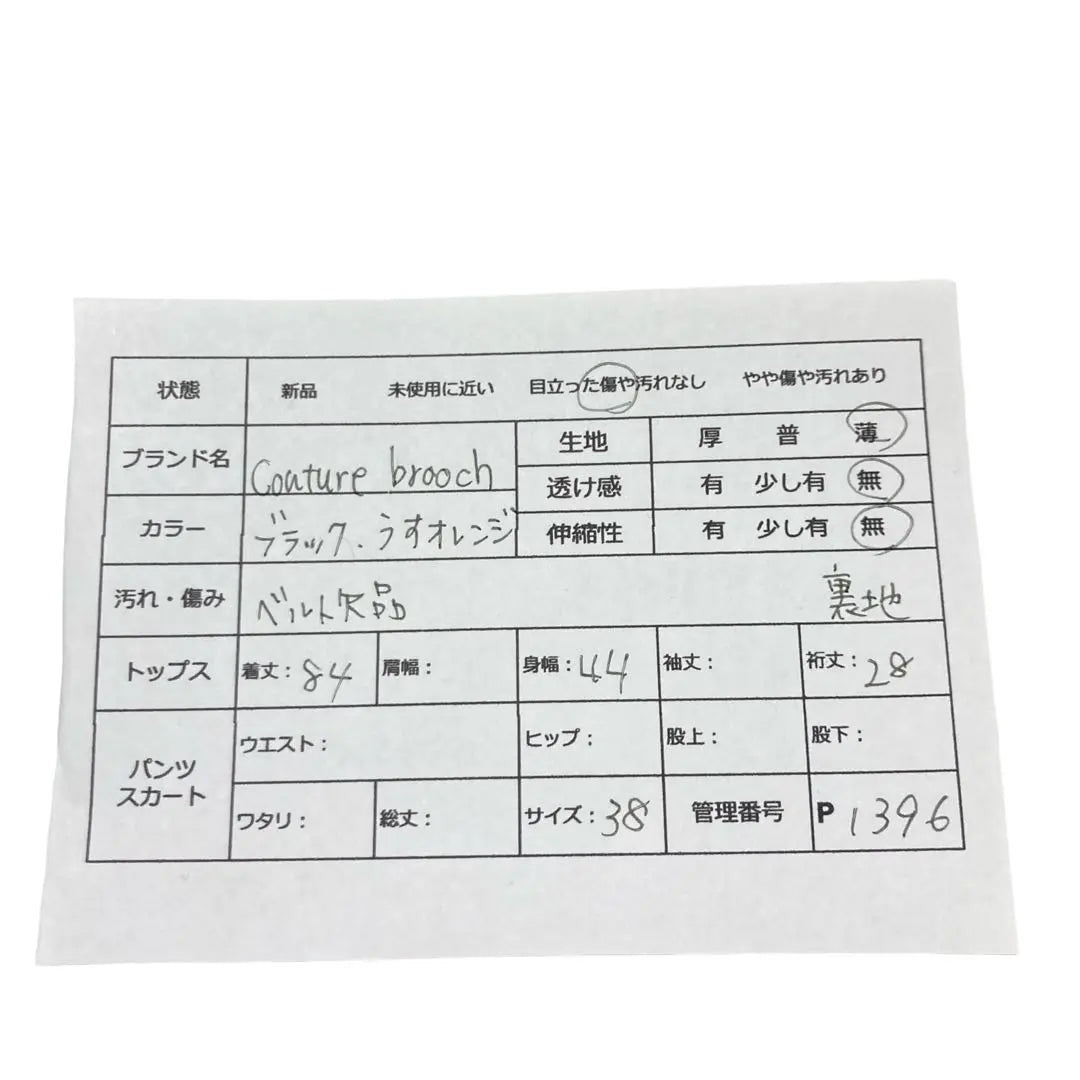 状態 新品 未使用に近い 目立った傷や汚れなし やや傷や汚れあり
ブランド名 Couture brooch 生地 厚 普 薄
透け感 有 少し有 無
カラー ブラック、うすオレンジ 伸縮性 有 少し有 無
汚れ・傷み ベルト欠品 裏地
トップス 着丈：84 肩幅： 身幅：44 袖丈： 裄丈：28
パンツ
スカート
ウエスト： ヒップ： 股上： 股下：
ワタリ： 総丈： サイズ：38 管理番号 P 1396